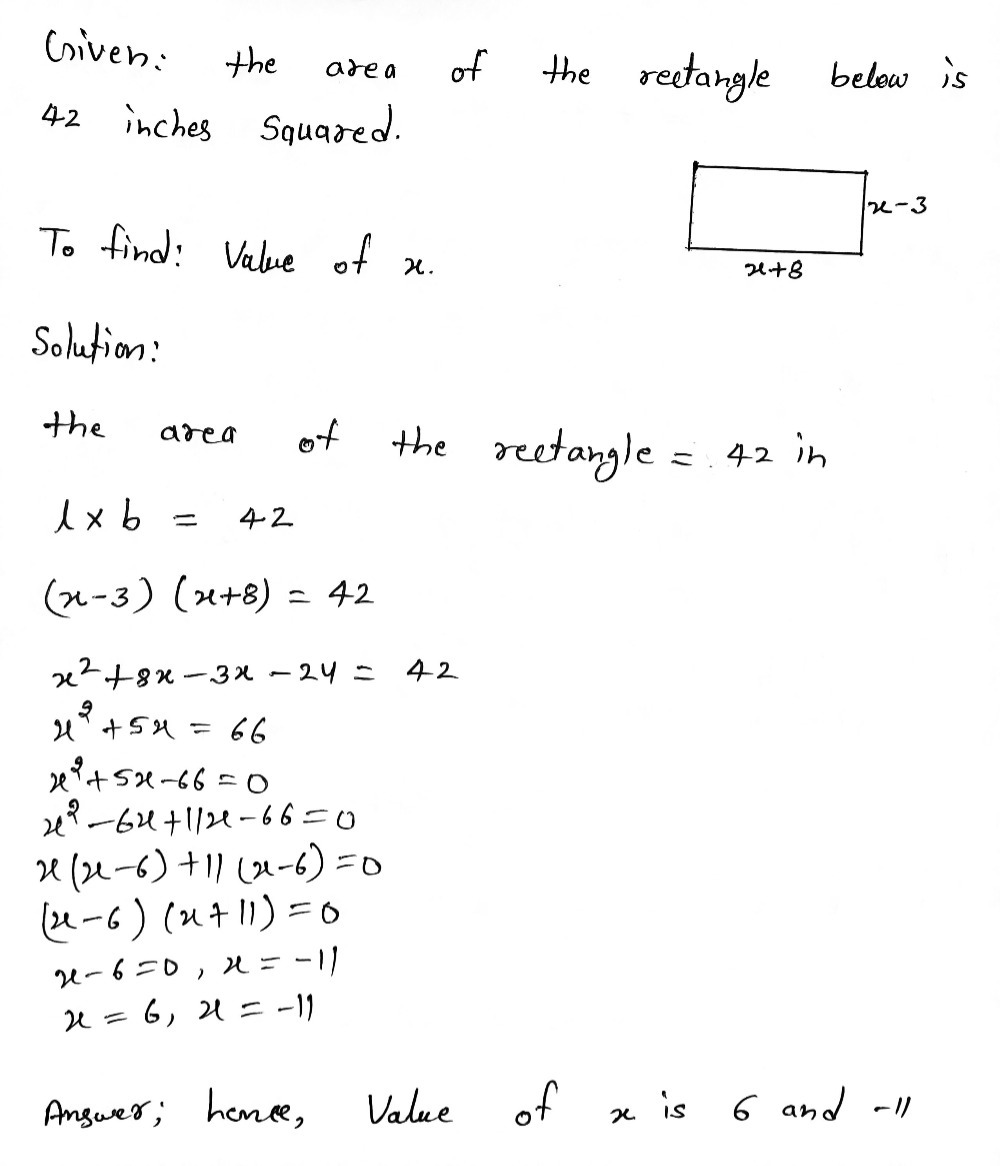 Given: the area of the rectangle below is
42 inches Squared.
x-3
x+8
To find: Value of x.
Solution:
the area of the rectangle = 42 in
l x b = 42
(x-3) (x+8) = 42
x² +8x -3x -24 = 42
x² +5x = 66
x² +5x-66 = 0
x² -6x+11x-66 = 0
x(x-6) +11 (x-6) = 0
(x-6) (x+11) = 0
x-6 =0, x = -11
x = 6, x = -11
Answer; hence, Value of x is 6 and -11